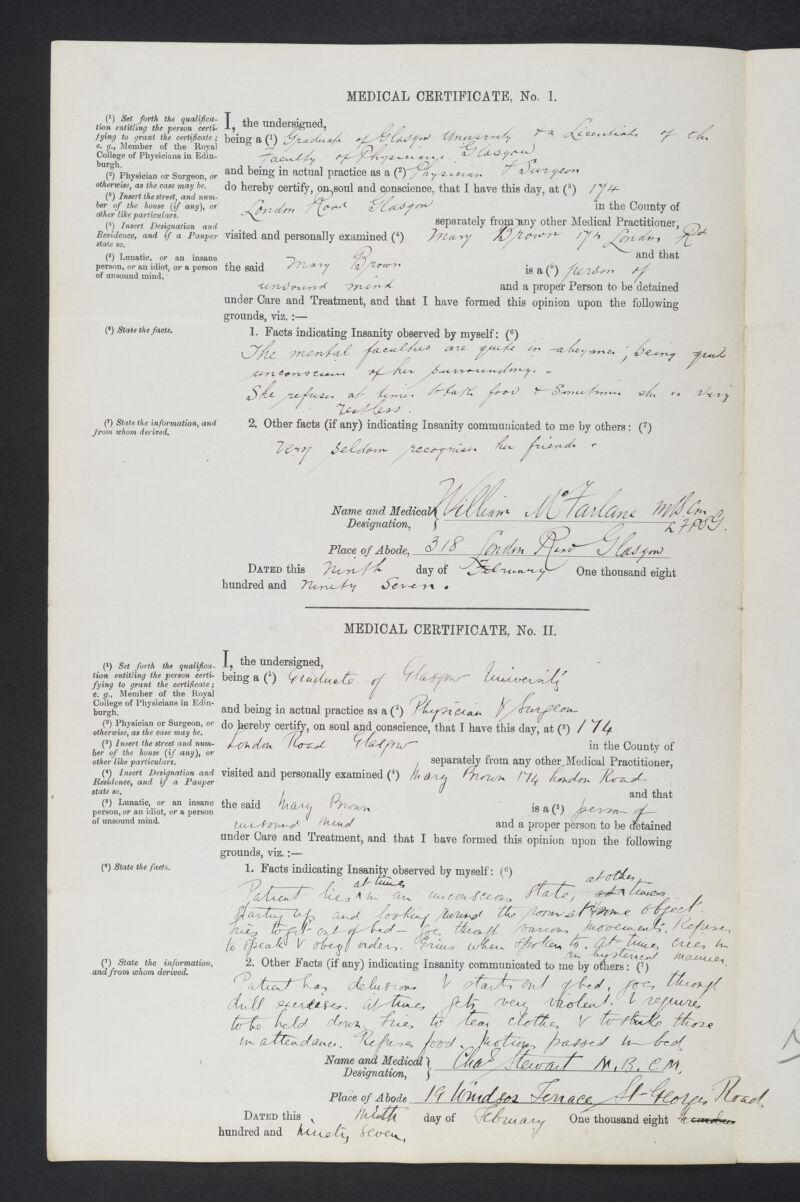 MEDICAL CERTIFICATE, No. I.
(¹) Set forth the qualifica-
tion entitling the person certi-
fying to grant the certificate;
e. g., Member of the Royal
College of Physicians in Edin-
burgh.
(²) Physician or Surgeon, or
otherwise, as the case may be.
(³) Insert the street, and num-
ber of the house (if any), or
other like particulars.
(⁴) Insert Designation and
Residence, and if a Pauper
state so.
(⁵) Lunatic, or an insane
person, or an idiot, or a person
of unsound mind.
I, the undersigned,
being a (¹) Graduate of Glasgow University & a Licentiate of the
Faculty of Physicians Glasgow
and being in actual practice as a (²) Physician & Surgeon
do hereby certify, on soul and conscience, that I have this day, at (³) 174
London Road Glasgow in the County of
separately from any other Medical Practitioner,
visited and personally examined (⁴) Mary Brown 174 London Rd
and that
the said Mary Brown is a (⁵) person of
unsound mind and a proper Person to be detained
under Care and Treatment, and that I have formed this opinion upon the following
grounds, viz. :—
(⁶) State the facts.
1. Facts indicating Insanity observed by myself: (⁶)
The mental faculties are quite in abeyance; being quite
unconscious of her surroundings.
She refuses at times to take food & sometimes she is very
restless.
(⁷) State the information, and
from whom derived.
2. Other facts (if any) indicating Insanity communicated to me by others: (⁷)
Very seldom recognises her friends.
Name and Medical William McFarlane MB Cm
Designation, LFPSG.
Place of Abode, 318 London Road Glasgow
DATED this Ninth day of February One thousand eight
hundred and Ninety Seven.
MEDICAL CERTIFICATE, No. II.
(¹) Set forth the qualifica-
tion entitling the person certi-
fying to grant the certificate;
e. g., Member of the Royal
College of Physicians in Edin-
burgh.
(²) Physician or Surgeon, or
otherwise, as the case may be.
(³) Insert the street and num-
ber of the house (if any), or
other like particulars.
(⁴) Insert Designation and
Residence, and if a Pauper
state so.
(⁵) Lunatic, or an insane
person, or an idiot, or a person
of unsound mind.
I, the undersigned,
being a (¹) Graduate of Glasgow University
and being in actual practice as a (²) Physician & Surgeon
do hereby certify, on soul and conscience, that I have this day, at (³) 174
London Road Glasgow in the County of
separately from any other Medical Practitioner,
visited and personally examined (⁴) Mary Brown 174 London Road
and that
the said Mary Brown is a (⁵) person of
unsound mind and a proper person to be detained
under Care and Treatment, and that I have formed this opinion upon the following
grounds, viz. :—
(⁶) State the facts.
1. Facts indicating Insanity observed by myself: (⁶)
Patient lies at times in an unconscious state, at other times
starting up and looking round the room at some object.
tries to get out of bed – goes through various movements. Refuses
to speak & obey orders. Grins when spoken to. at times cries in
an hysterical manner.
(⁷) State the information,
and from whom derived.
2. Other Facts (if any) indicating Insanity communicated to me by others: (⁷)
Patient has delusions & starts out of bed, goes through
drill exercises. at times gets very violent. & requires
to be held down. tries to tear clothes & to strike those
in attendance. Refuses food. Motions passed in bed
Name and Medical Chas Stewart M.B. C.M.
Designation,
Place of Abode 19 Windsor Terrace St Georges Road.
DATED this Ninth day of February One thousand eight
hundred and Ninety Seven,